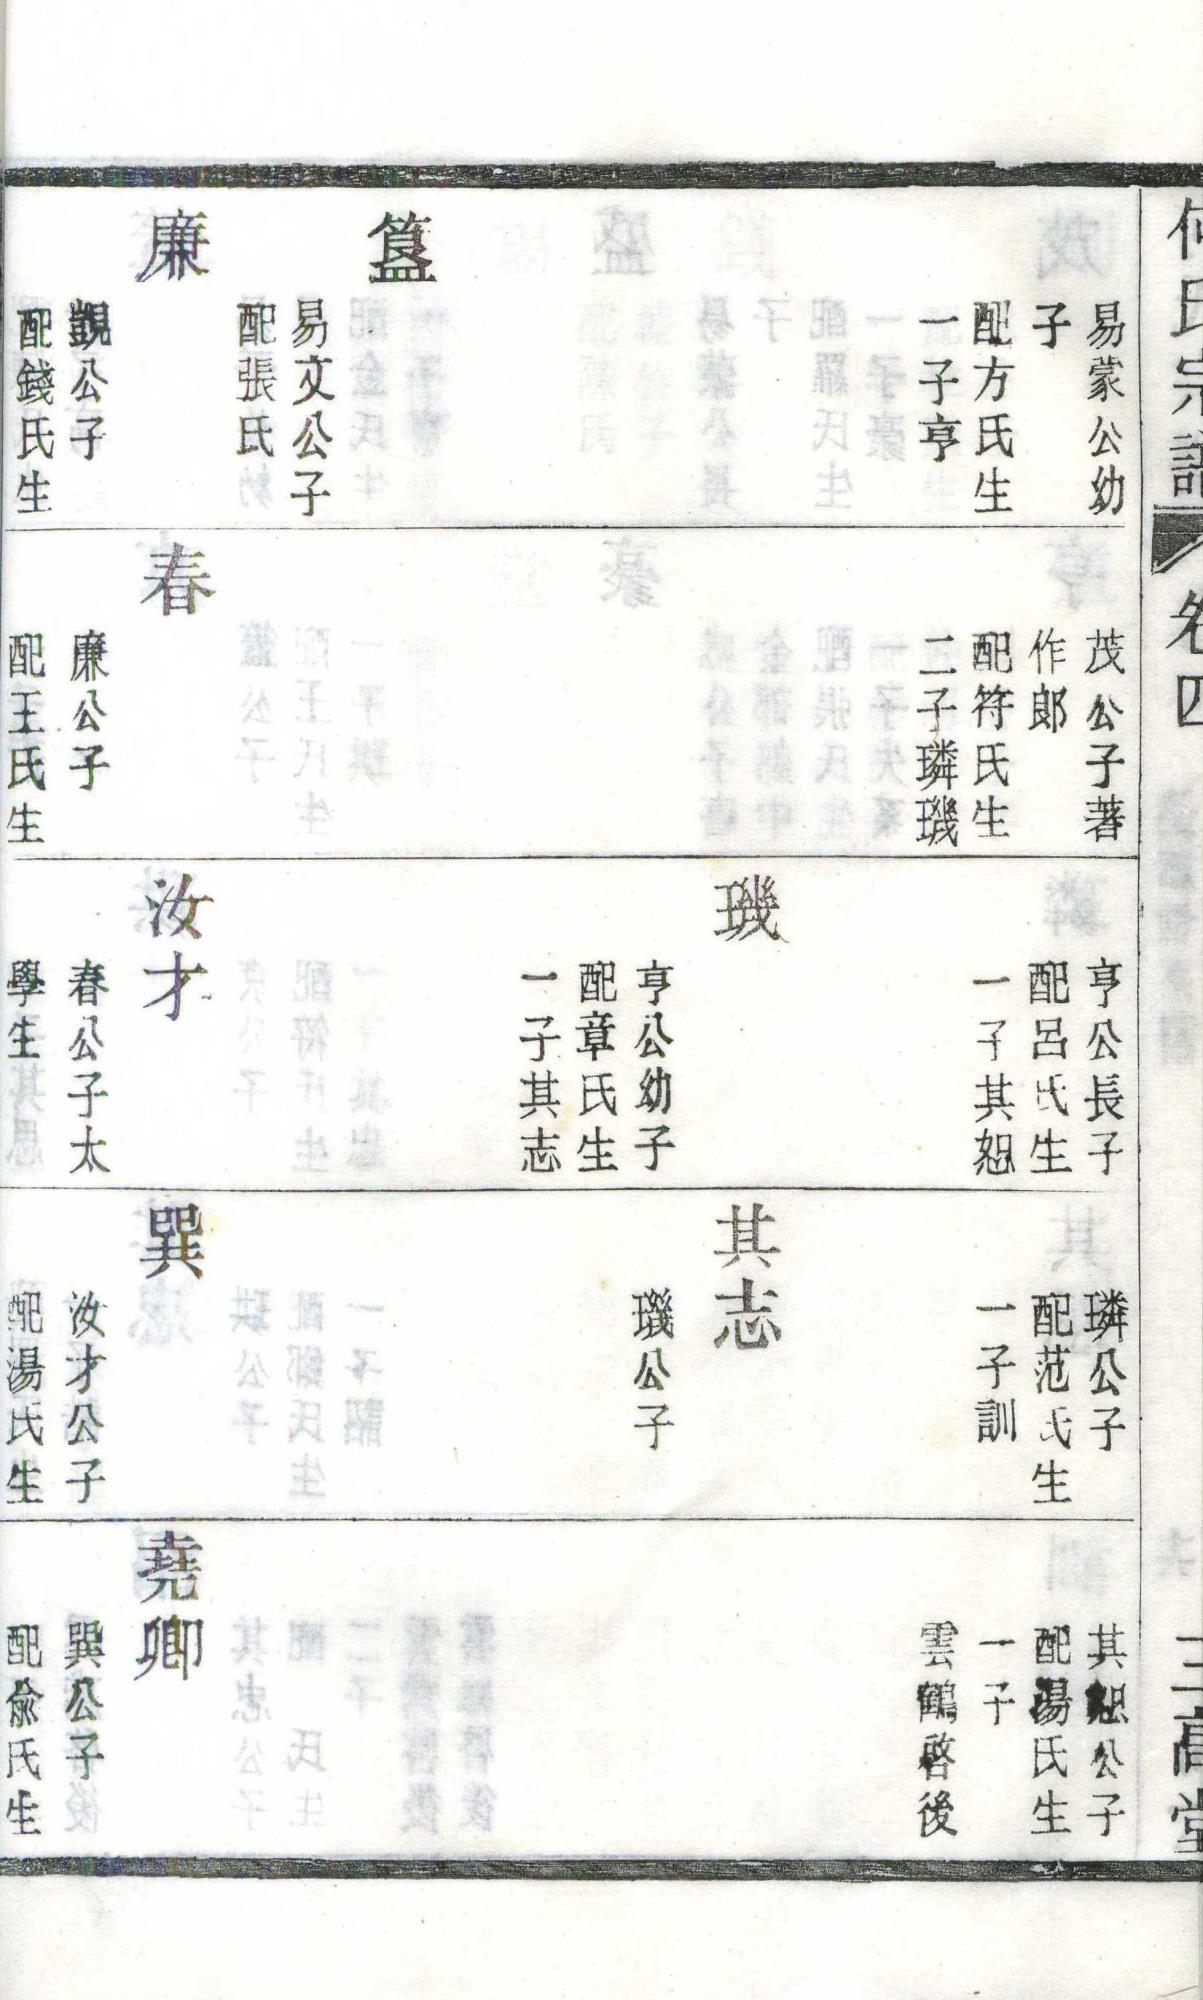 何氏宗譜
卷四
三高堂
易蒙公幼
子
配方氏生
一子亨
簋
易文公子
配張氏
廉
覬公子
配錢氏生
茂公子著
作郎
配符氏生
二子璘璣
春
廉公子
配王氏生
亨公長子
配呂氏生
一子其恕
璣
亨公幼子
配章氏生
一子其志
汝才
春公子太
學生
璘公子
配范氏生
一子訓
其志
璣公子
巽
汝才公子
配湯氏生
其恕公子
配湯氏生
一子
雲鶴啓後
堯卿
巽公子
配俞氏生